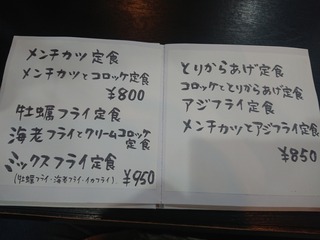 メンチカツ定食
メンチカツとコロッケ定食
¥800
牡蠣フライ定食
海老フライとクリームコロッケ
定食
ミックスフライ定食
(牡蠣フライ・海老フライ・イカフライ) ¥950
とりからあげ定食
コロッケととりからあげ定食
アジフライ定食
メンチカツとアジフライ定食
¥850